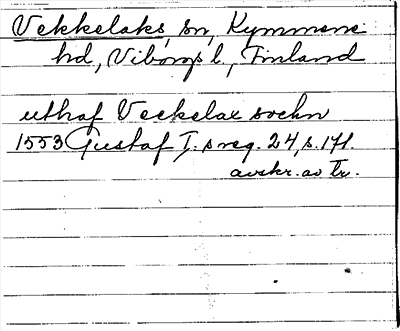 Vekkelaks, sn, Kymmene
hd, Viborgs l., Finland
uthaf Veckelax sochn
1553 Gustaf I. s reg. 24, s. 171.
avskr. av Tr.